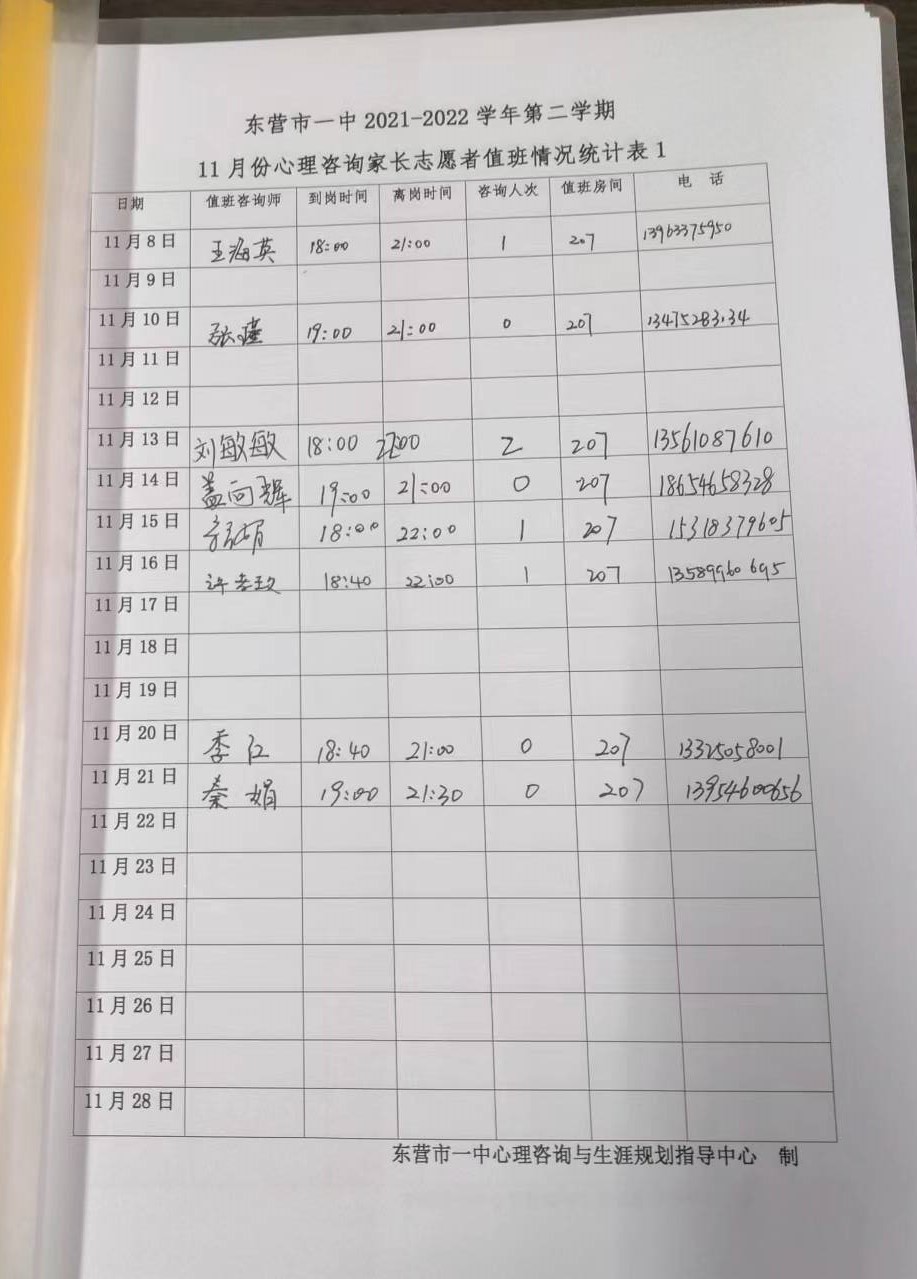 东营市一中 2021-2022 学年第二学期
11 月份心理咨询家长志愿者值班情况统计表 1
日期 值班咨询师 到岗时间 离岗时间 咨询人次 值班房间 电 话
11 月 8 日 王海英 18:00 21:00 1 207 13963375950
11 月 9 日
11 月 10 日 张瑾 19:00 21:00 0 207
11 月 11 日
11 月 12 日
11 月 13 日 刘敏敏 18:00 22:00 2 207 13561087610
11 月 14 日 盖向辉 19:00 21:00 0 207 18654658328
11 月 15 日 18:00 22:00 1 207 15318379605
11 月 16 日 18:40 22:00 1 207 13589960695
11 月 17 日
11 月 18 日
11 月 19 日
11 月 20 日 季红 18:40 21:00 0 207 13325058001
11 月 21 日 秦娟 19:00 21:30 0 207 13954600656
11 月 22 日
11 月 23 日
11 月 24 日
11 月 25 日
11 月 26 日
11 月 27 日
11 月 28 日
东营市一中心理咨询与生涯规划指导中心 制